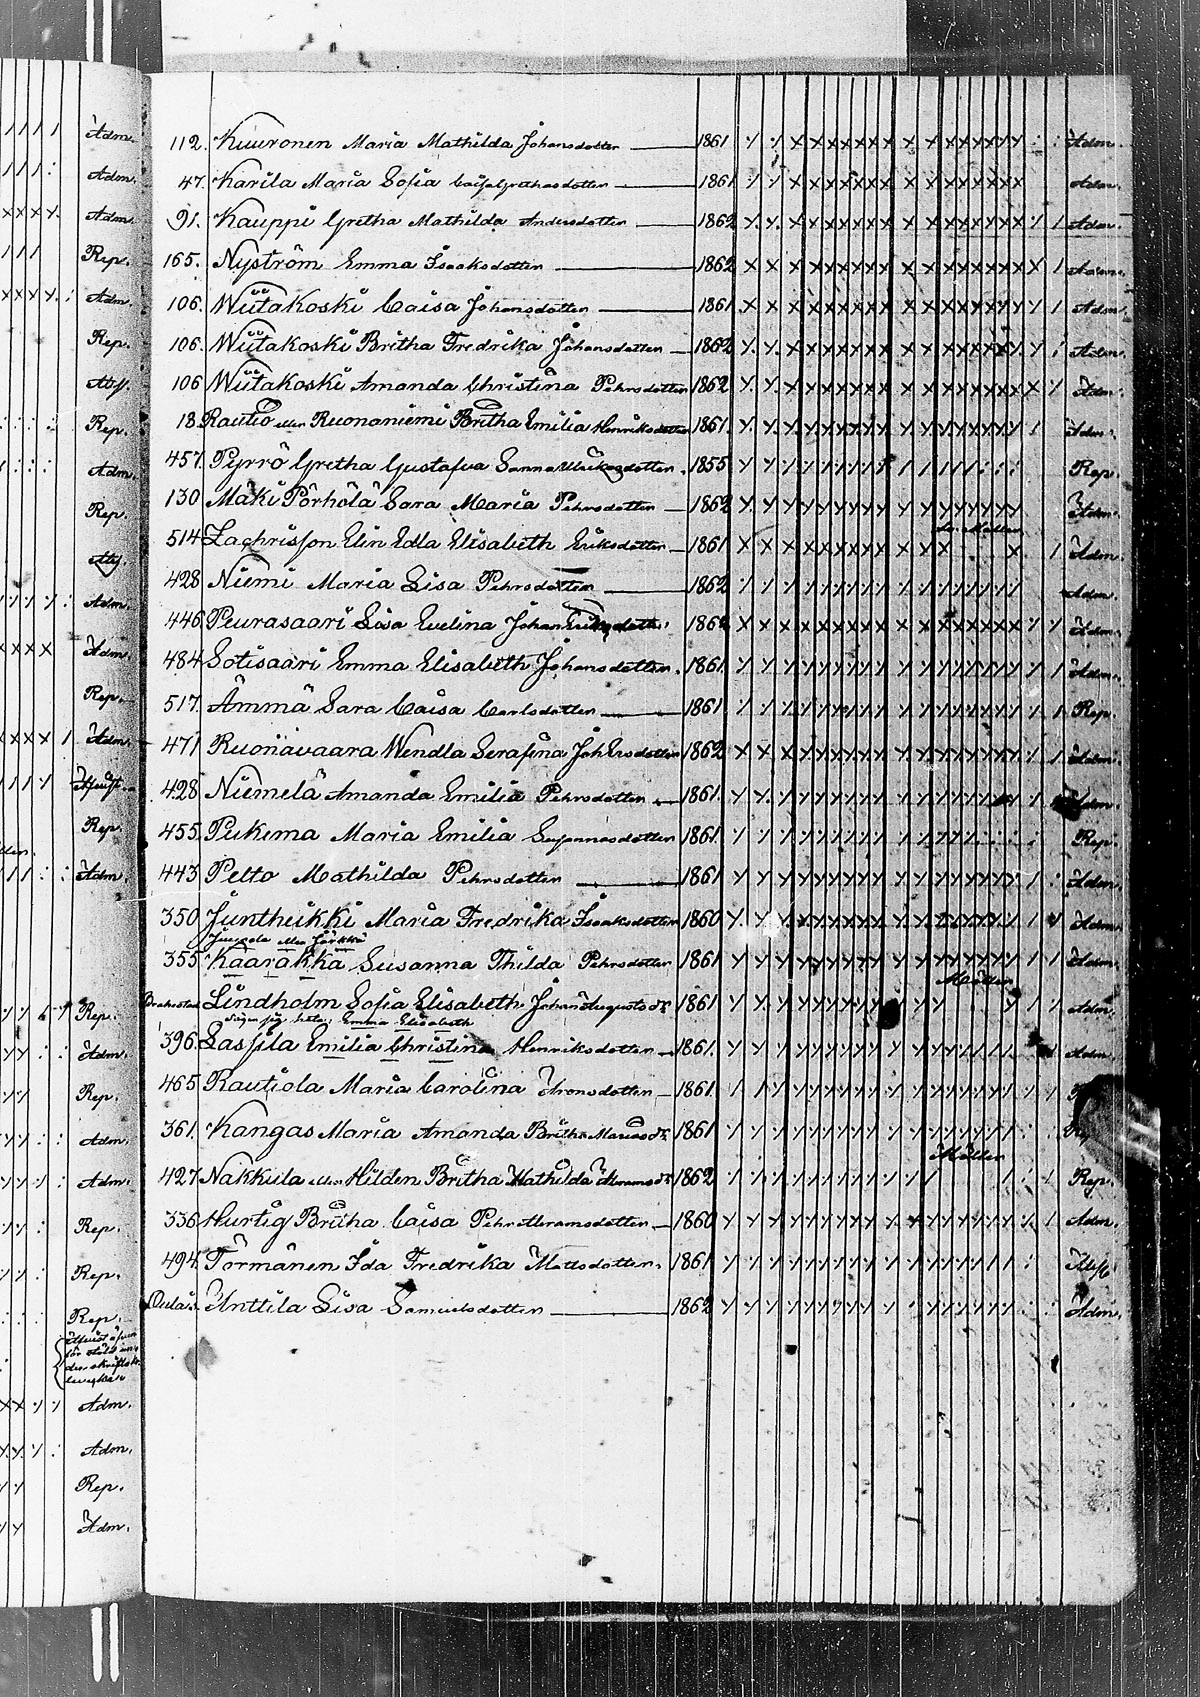 112. Kuuronen Maria Mathilda Johansdotter 1861 Adm.
47. Karila Maria Sofia Caisa Grethasdotter 1861 Adm.
91. Kauppi Gretha Mathilda Andersdotter 1862 Adm.
165. Nyström Emma Isaaksdotter 1862 Adm.
106. Wiitakoski Caisa Johansdotter 1861 Adm.
106. Wiitakoski Britha Fredrika Johansdotter 1862 Adm.
106 Wiitakoski Amanda Christina Pehrsdotter 1862 Adm.
18. Rautio eller Ruonaniemi Britha Emilia Henriksdotter 1861. Adm.
457. Pyrrö Gretha Gustafva Sanna Ulrikasdotter. 1855 Rep.
130 Mäki Pörhölä Sara Maria Pehrsdotter 1862 Adm.
514 Zachrisson Elin Edla Elisabeth Eriksdotter 1861 Adm
428 Niemi Maria Lisa Pehrsdotter 1862 Adm.
446. Peurasaari Lisa Evelina Johan 1862 Adm.
484 Sotisaari Emma Elisabeth Johansdotter. 1861. Adm.
517. Ämmä Sara Caisa Carlsdotter 1861 Rep.
471 Ruonavaara Wendla Serafina Joh Ersdotter 1862 Adm.
428 Niemelä Amanda Emilia Pehrsdotter 1861. Adm.
455. Pukema Maria Emilia Susannasdotter 1861. Rep.
443 Pelto Mathilda Pehrsdotter 1861 Adm.
350 Juntheikki Maria Fredrika Isaaksdotter 1860 Adm.
eller
355 Kääräkkä Susanna Thilda Pehrsdotter 1861 Adm.
Mölder
Brahestad Lindholm Sofia Elisabeth Johan Augusts dr 1861 Adm.
säger sig heta: Emma Elisabeth
396. Lassila Emilia Christina Henriksdotter 1861. Adm.
465 Rautiola Maria Carolina Aronsdotter 1861.
361. Kangas Maria Amanda Britha Marias dr 1861
Mölder
427 Nakkula eller Hilden Britha Mathilda Abrams dr 1862 Rep.
336 Hurtig Britha Caisa Pehr Abramsdotter 1860 Adm.
494 Törmänen Ida Fredrika Mattsdotter. 1861
Oulais. Anttila Lisa Samuelsdotter 1862 Adm.
Adm.
Adm.
Adm.
Rep.
Adm.
Rep.
Rep.
Adm.
Rep.
Adm.
Adm.
Rep.
Adm.
Rep.
Adm.
Rep.
Adm.
Rep.
Adm.
Adm.
Rep.
Rep.
Rep.
Adm.
Adm.
Rep.
Adm.